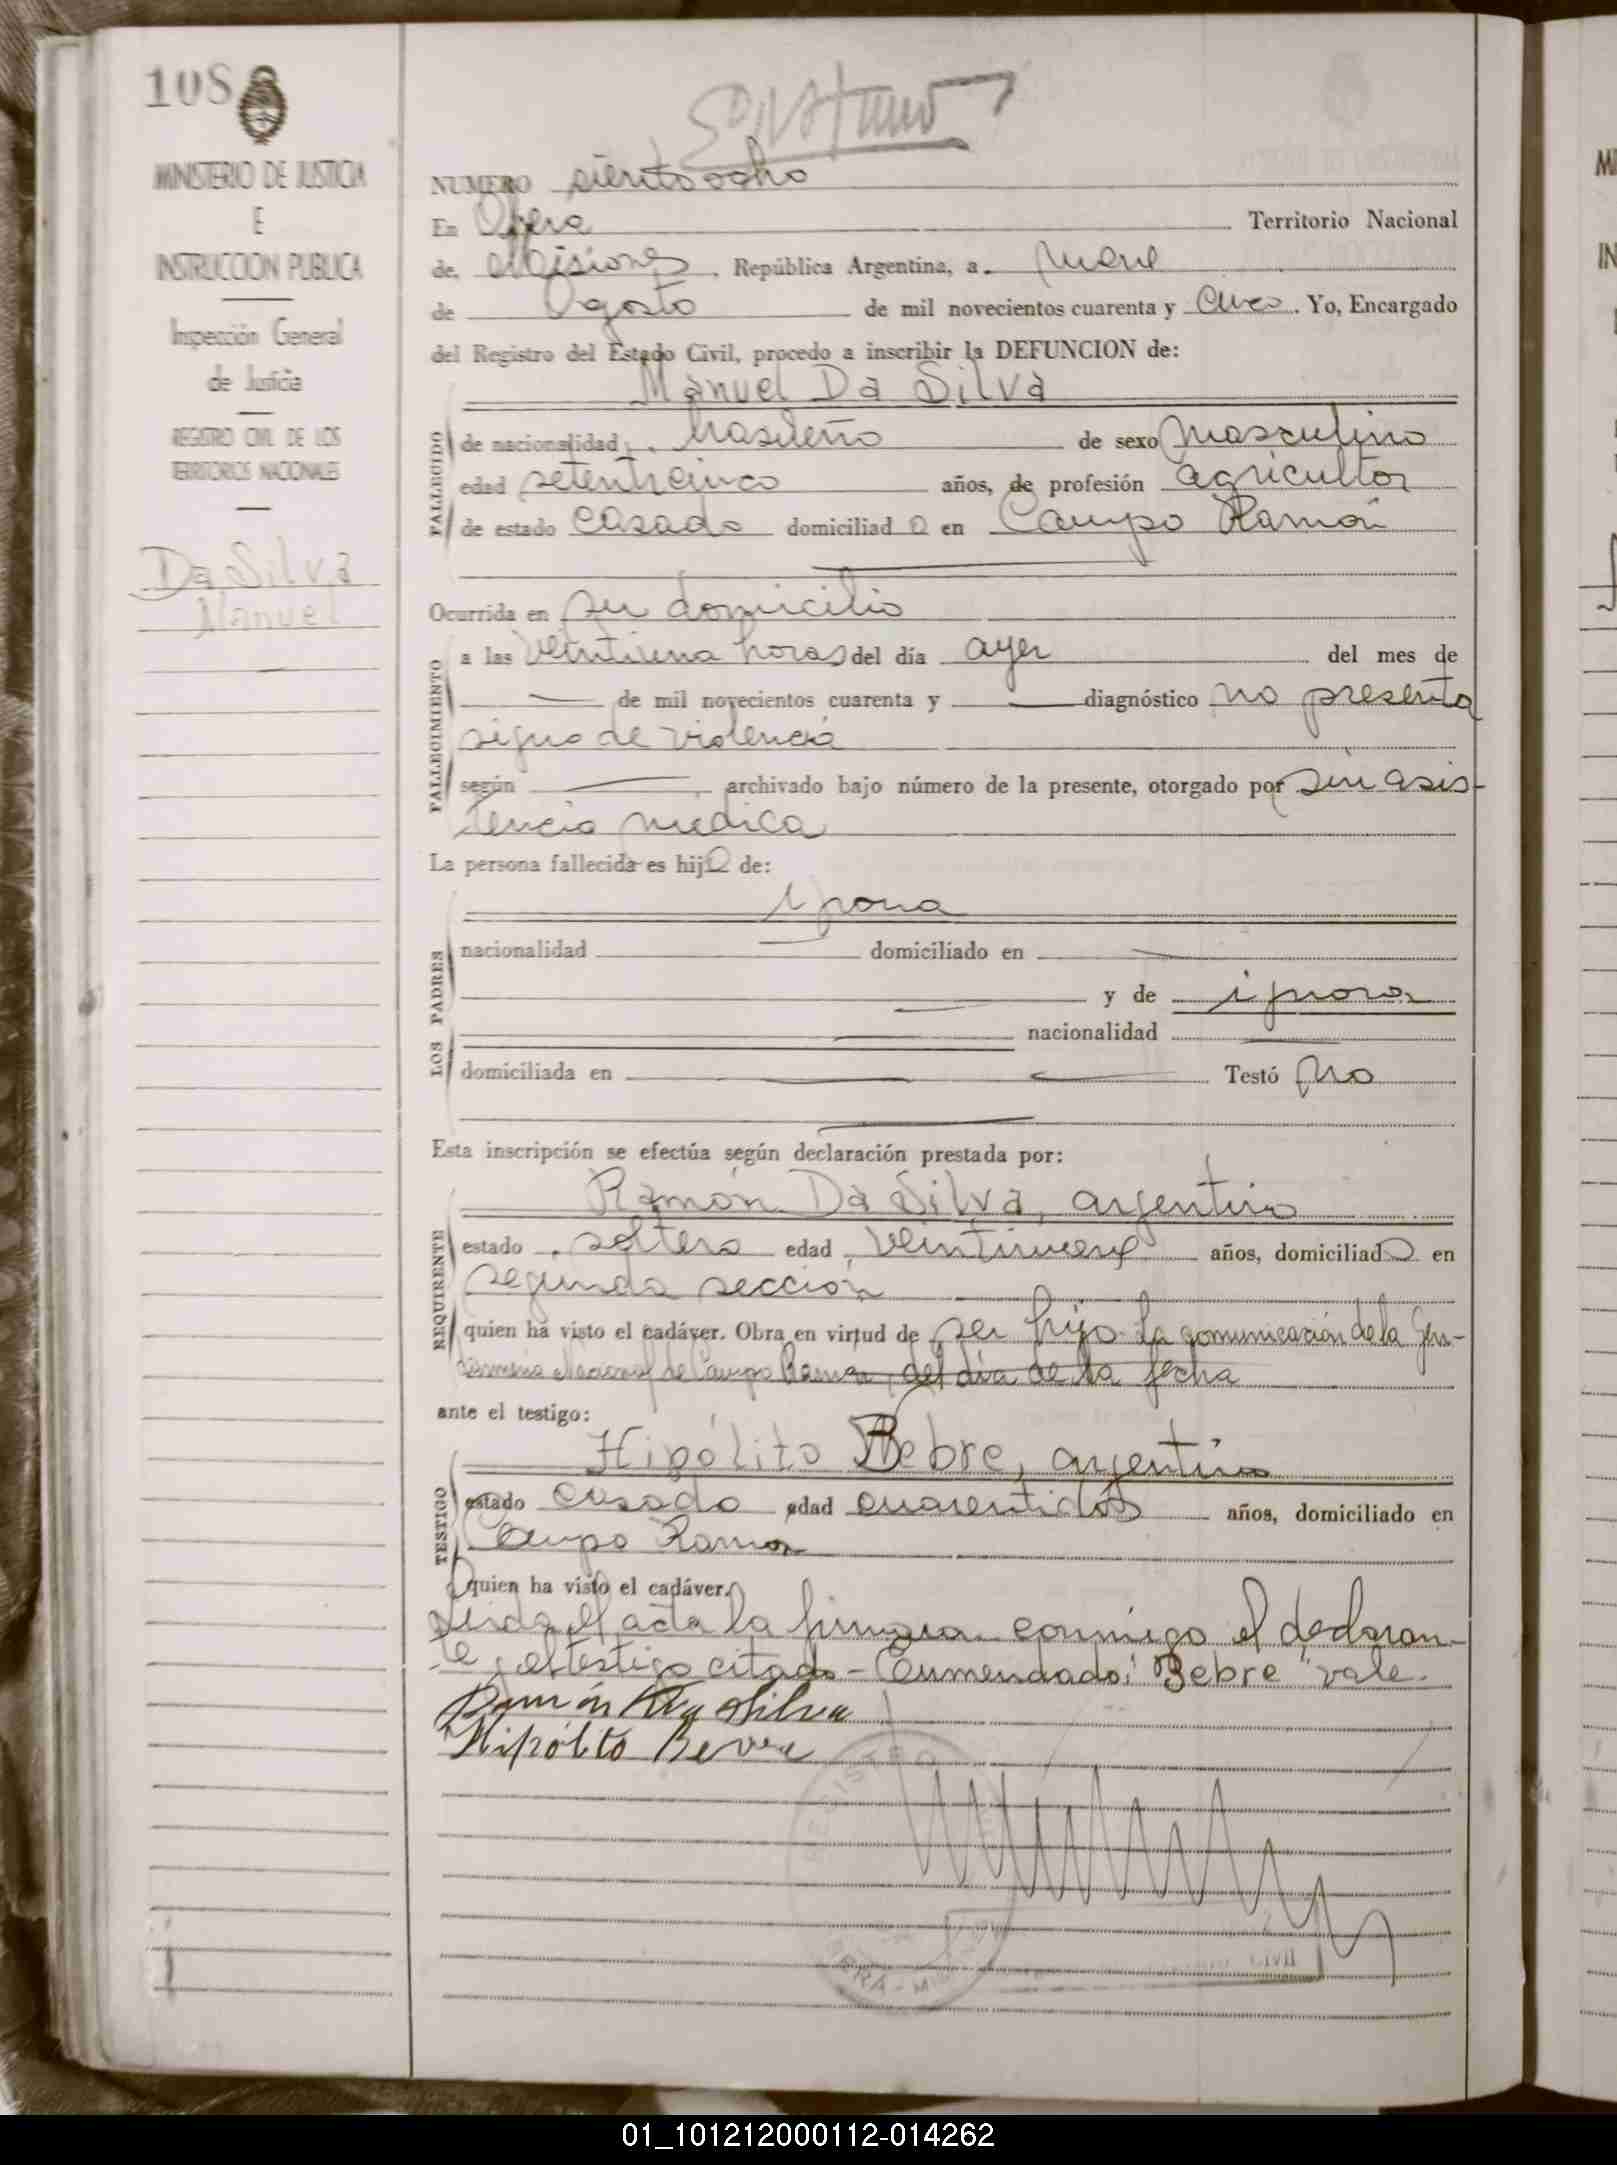 108
MINISTERIO DE JUSTICIA
E
INSTRUCCION PUBLICA
Inspección General
de Justicia
REGISTRO CIVIL DE LOS
TERRITORIOS NACIONALES
Da Silva
Manuel
NUMERO siento ocho
En Obera Territorio Nacional
de Misiones, República Argentina, a nueve
de Agosto de mil novecientos cuarenta y cinco. Yo, Encargado
del Registro del Estado Civil, procedo a inscribir la DEFUNCION de:
Manuel Da Silva
FALLECIDO
de nacionalidad brasileño de sexo masculino
edad setenticinco años, de profesión agricultor
de estado casado domiciliado en Campo Ramón
Ocurrida en su domicilio
FALLECIMIENTO
a las veintiuna horas del día ayer del mes de
— de mil novecientos cuarenta y — diagnóstico no presenta
signo de violencia
según — archivado bajo número de la presente, otorgado por sin asis-
tencia medica
La persona fallecida es hijo de:
LOS PADRES
ignora
nacionalidad — domiciliado en —
— y de ignora
— nacionalidad —
domiciliada en — Testó no
Esta inscripción se efectúa según declaración prestada por:
REQUIRENTE
Ramón Da Silva, argentino
estado soltero edad veintinueve años, domiciliado en
segunda sección
quien ha visto el cadáver. Obra en virtud de ser hijo la comunicación de la Gen-
darmeria Nacional de Campo Ramon, del día de la fecha
ante el testigo:
TESTIGO
Hipólito Bebre, argentino
estado casado edad cuarentidós años, domiciliado en
Campo Ramon
quien ha visto el cadáver.
Leida el acta la firman conmigo el declaran-
te y el testigo citado - Enmendado: "Bebre" vale.
Ramón Da Silva
Hipólito Bevre
REGISTRO
OBERA - MISIONES
01_101212000112-014262